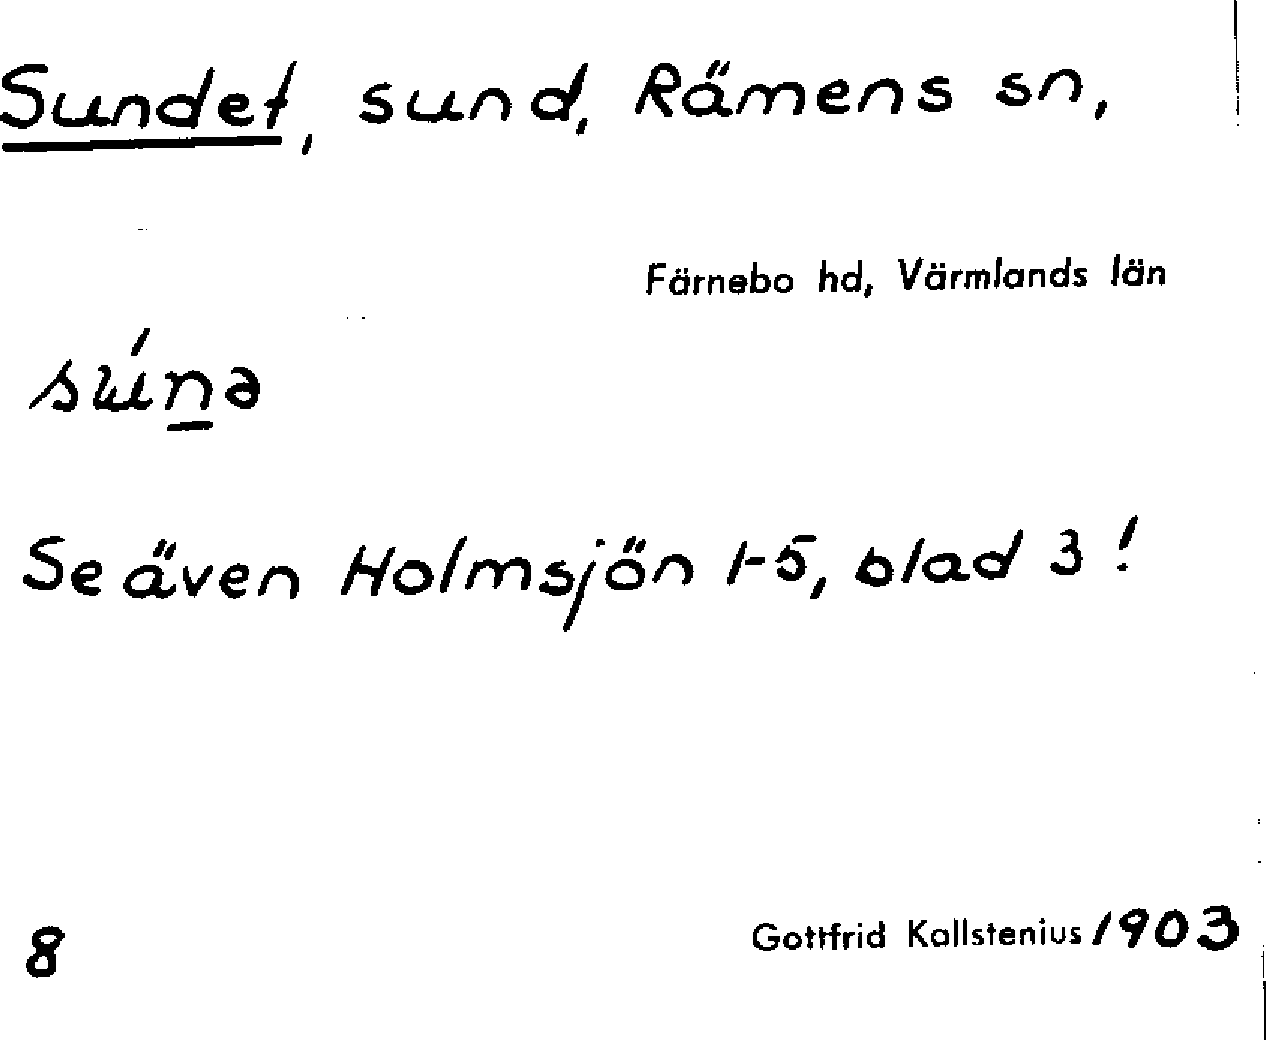 Sundet, sund, Rämens sn,
Färnebo hd, Värmlands län
su̍n̲ə
Se även Holmsjön 1-5, blad 3!
8
Gottfrid Kallstenius 1903